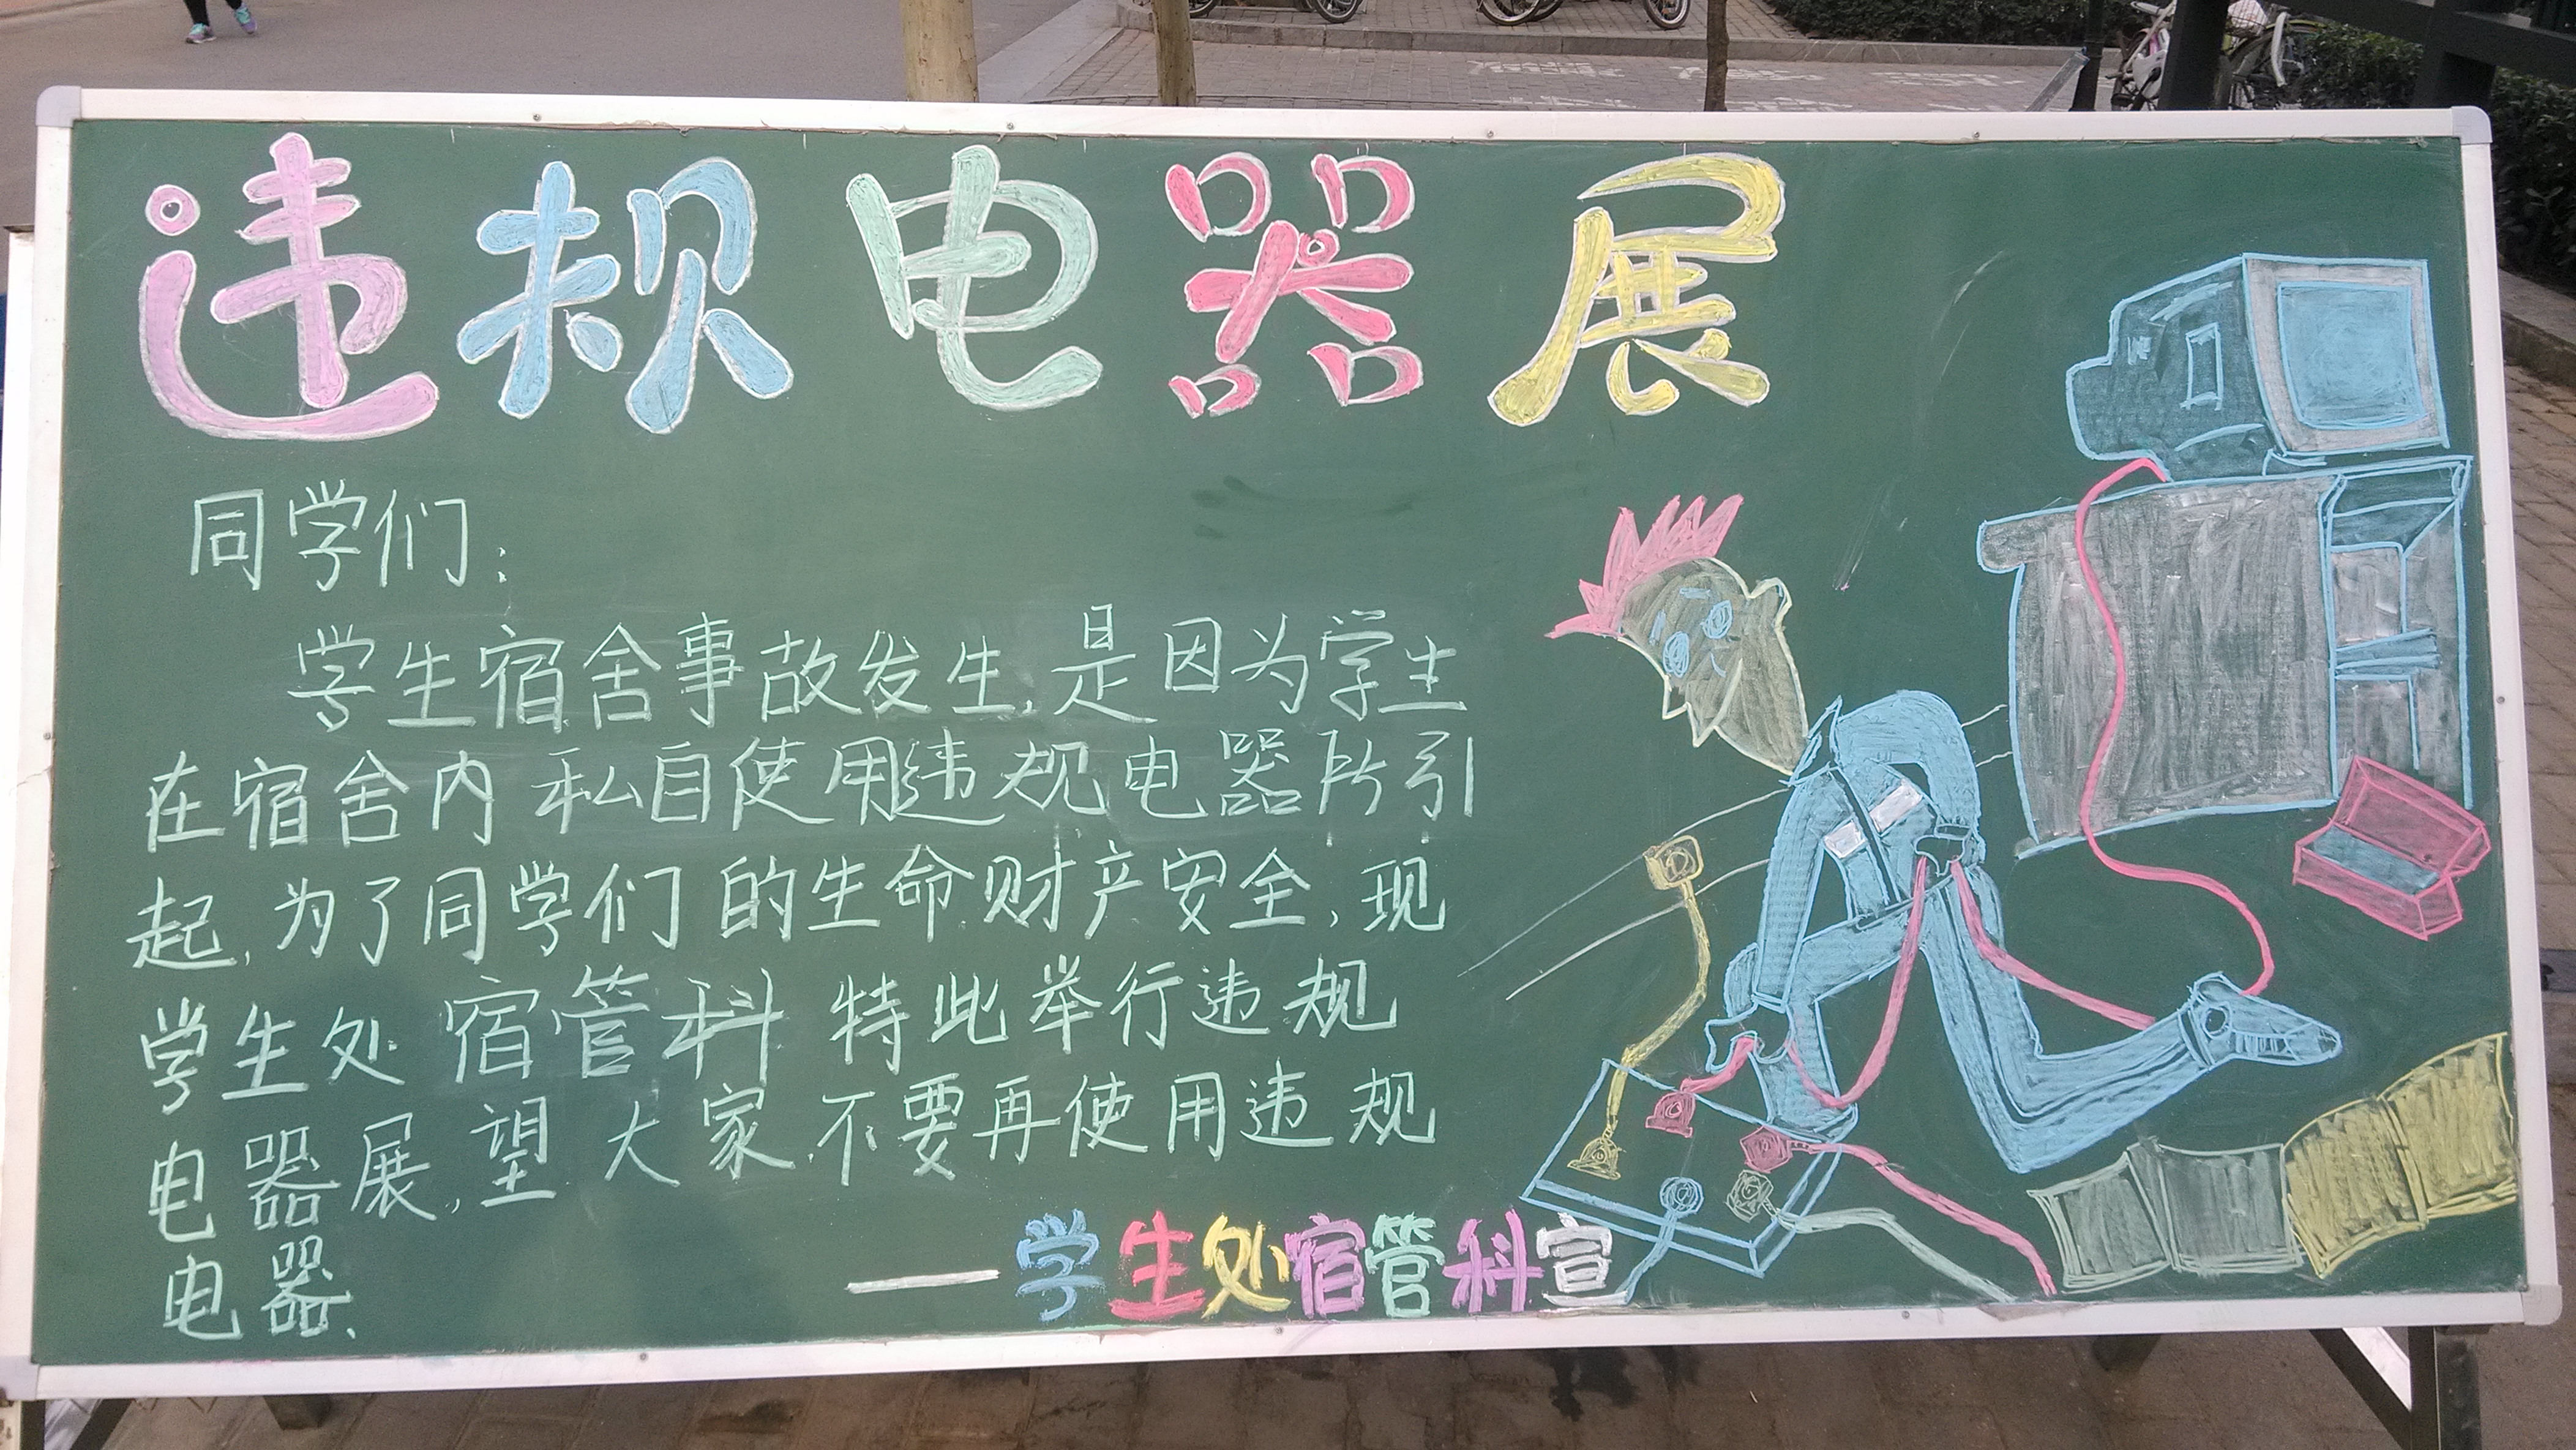 违规电器展
同学们：
学生宿舍事故发生,是因为学生
在宿舍内私自使用违规电器所引
起,为了同学们的生命财产安全,现
学生处宿管科特此举行违规
电器展,望大家不要再使用违规
电器.
——学生处宿管科宣